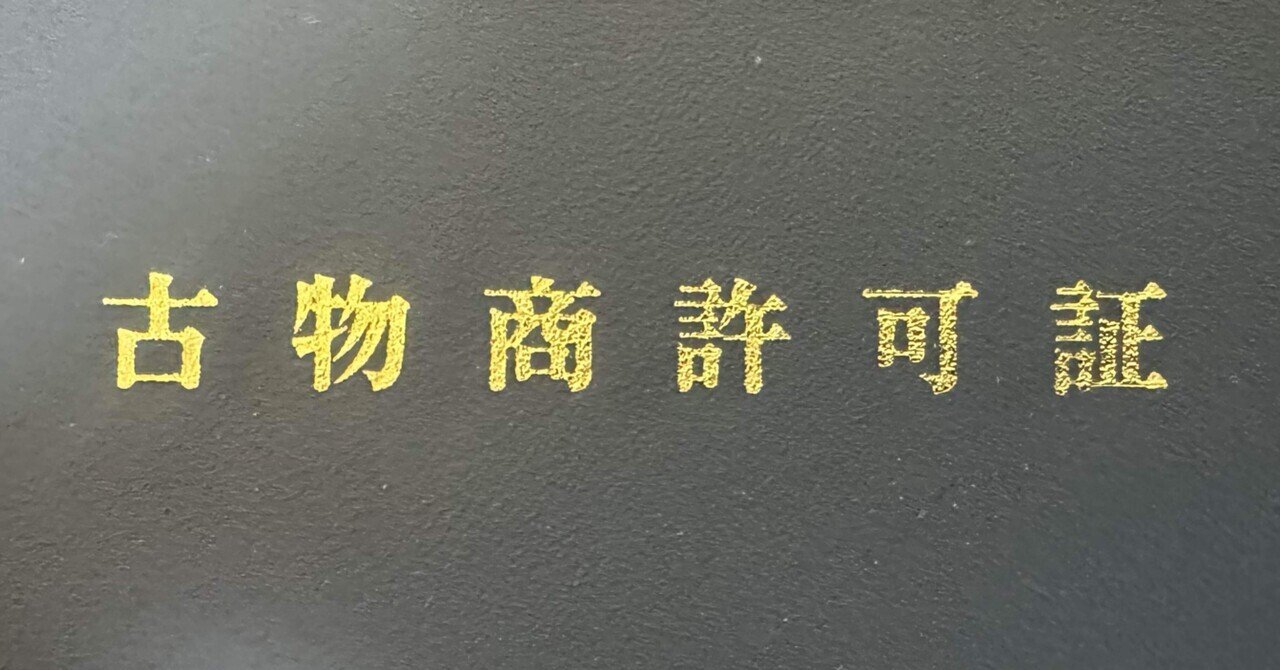 古物商許可証